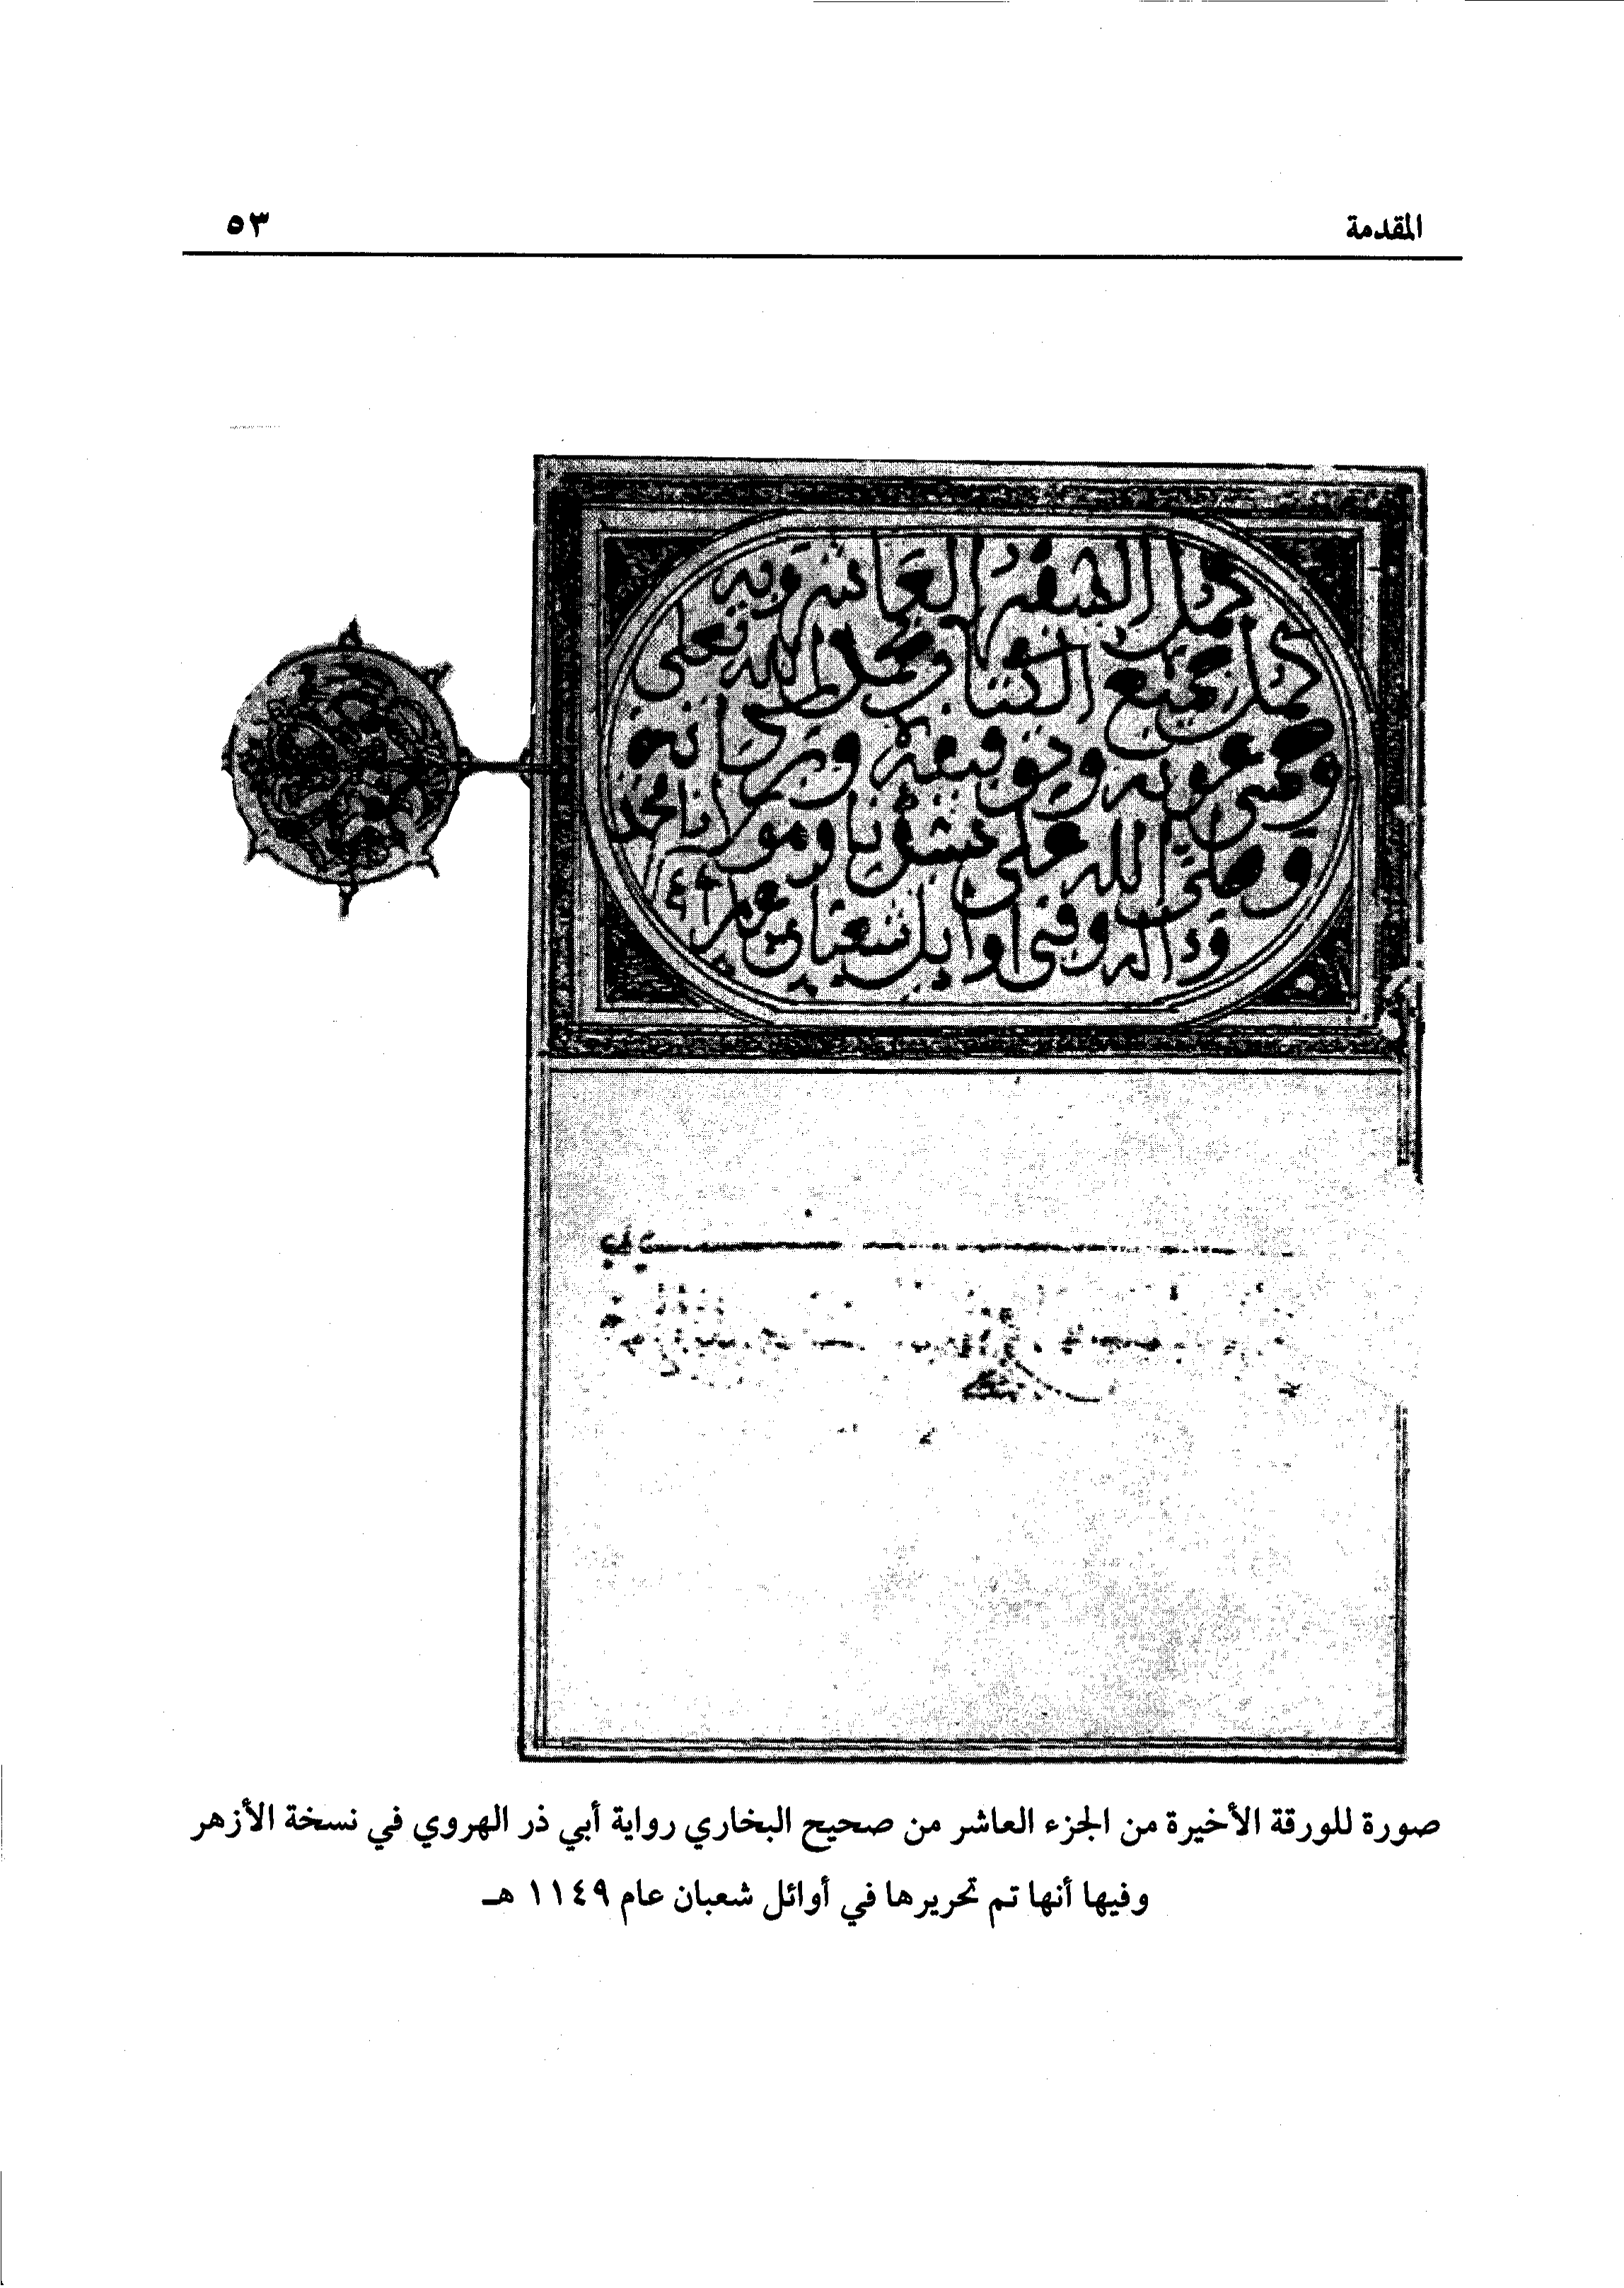 المقدمة
٥٣
كمل السفر العاشر وبه
كمل جميع الكتاب بحمد الله تعلى
وحسن عونه وتوفيقه
وصلى الله على سيدنا ومولانا محمد
وءاله وفي اوايل شعبان عام
صورة للورقة الأخيرة من الجزء العاشر من صحيح البخاري رواية أبي ذر الهروي في نسخة الأزهر
وفيها أنها تم تحريرها في أوائل شعبان عام ١١٤٩ هـ